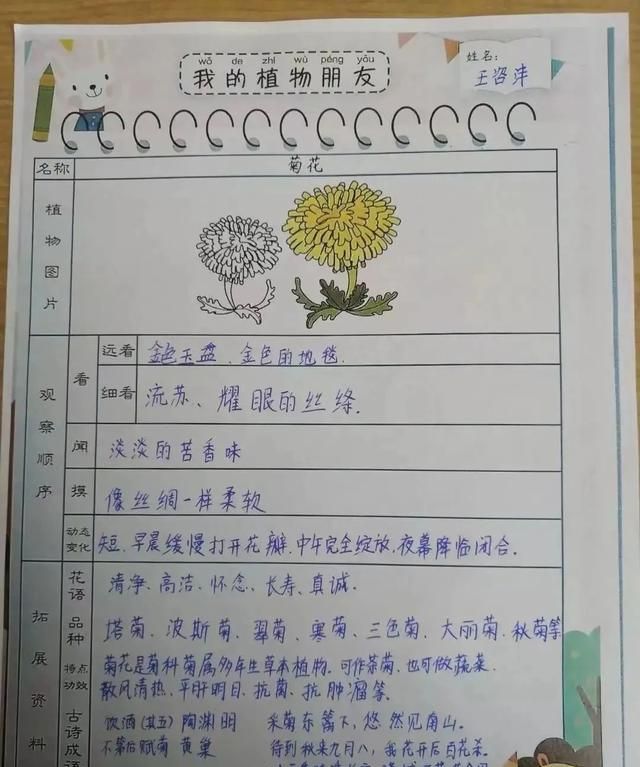 wǒ de zhí wù péng yǒu
我的植物朋友
姓名:
王咨沣
名称 菊花
植物图片
观察顺序
看 远看 金色玉盘、金色的地毯.
细看 流苏、耀眼的丝绦.
闻 淡淡的苦香味
摸 像丝绸一样柔软
动态变化 短.早晨缓慢打开花瓣.中午完全绽放,夜幕降临闭合.
拓展资料
花语 清净、高洁、怀念、长寿、真诚.
品种 塔菊、波斯菊、翠菊、寒菊、三色菊、大丽菊.秋菊等
特点功效 菊花是菊科菊属多年生草本植物.可作茶菊.也可做蔬菜.
散风清热、平肝明目、抗菌、抗肿瘤等.
古诗成语 饮酒(其五)陶渊明 采菊东篱下,悠然见南山.
不第后赋菊 黄巢 待到秋来九月八,我花开后百花杀.